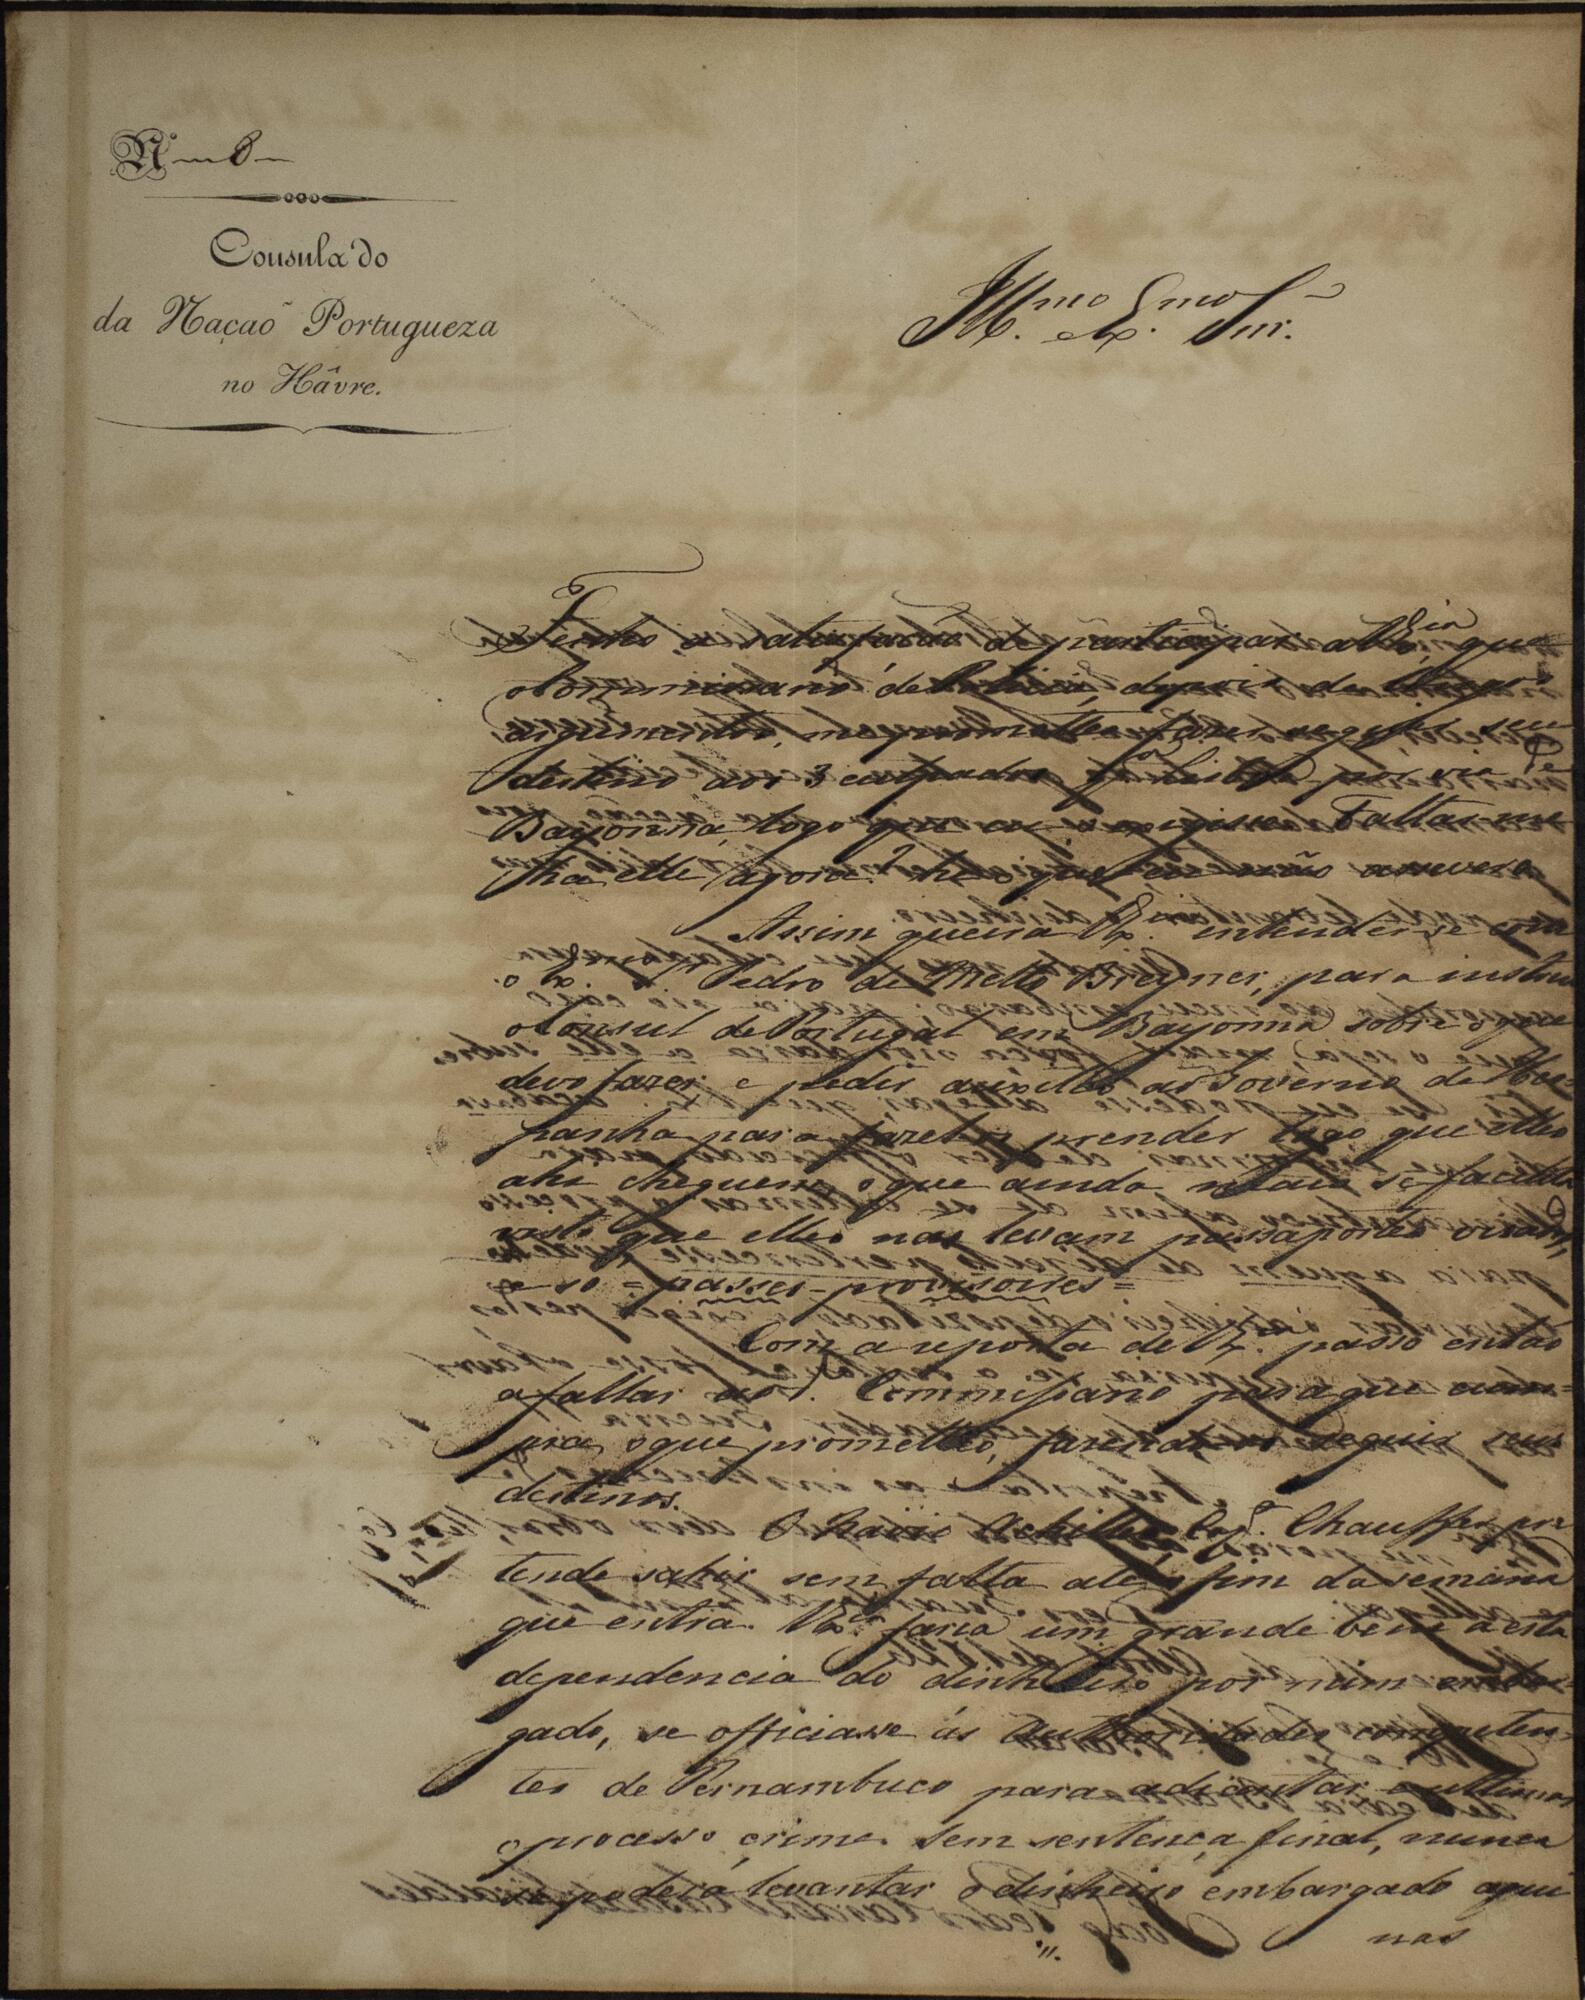 N.º 8
Consulado
da Naçaõ Portugueza
no Hâvre.
Ill.mo Ex.mo Snr.
Tenho a satisfacão de participar a V.Ex.cia, que
o Commissario de Policia, depois de longos
argumentos, me prometteo fazer seguir seu
destino aos 3 culpados p.a Lisboa por via de
Bayonna, logo que eu o exigisse. Faltar-me-
ha elle agora?
Assim queira V.Ex.cia entender-se com
o Ex. Pedro de Mello Breyner, para instru
o Consul de Portugal em Bayonna sobre o que
devo fazer e pedir auxilio ao Governo de Hes-
panha para fazel-os prender logo que elles
ahi cheguem o que ainda mais se facilita
visto que elles não levam passaportes visados,
e so = passes-provisoires =
Com a reposta de V.Ex. passo então
a fallar ao d. Commissario para que cum=
pra o que prometteo, fazendo-os seguir seus
destinos.
O Navio Achilles, Cap.m Chauffer pre
tende sahir sem falta até o fim da semana
que entra. V.Ex.cia faria um grande bem a esta
dependencia do dinheiro por mim embar=
gado, se officiasse ás Authoridades competen-
tes de Pernambuco para adiantar e ultimar
o processo crime. Sem sentença final, nunca
se poderá levantar o dinheiro embargado aqui
nas